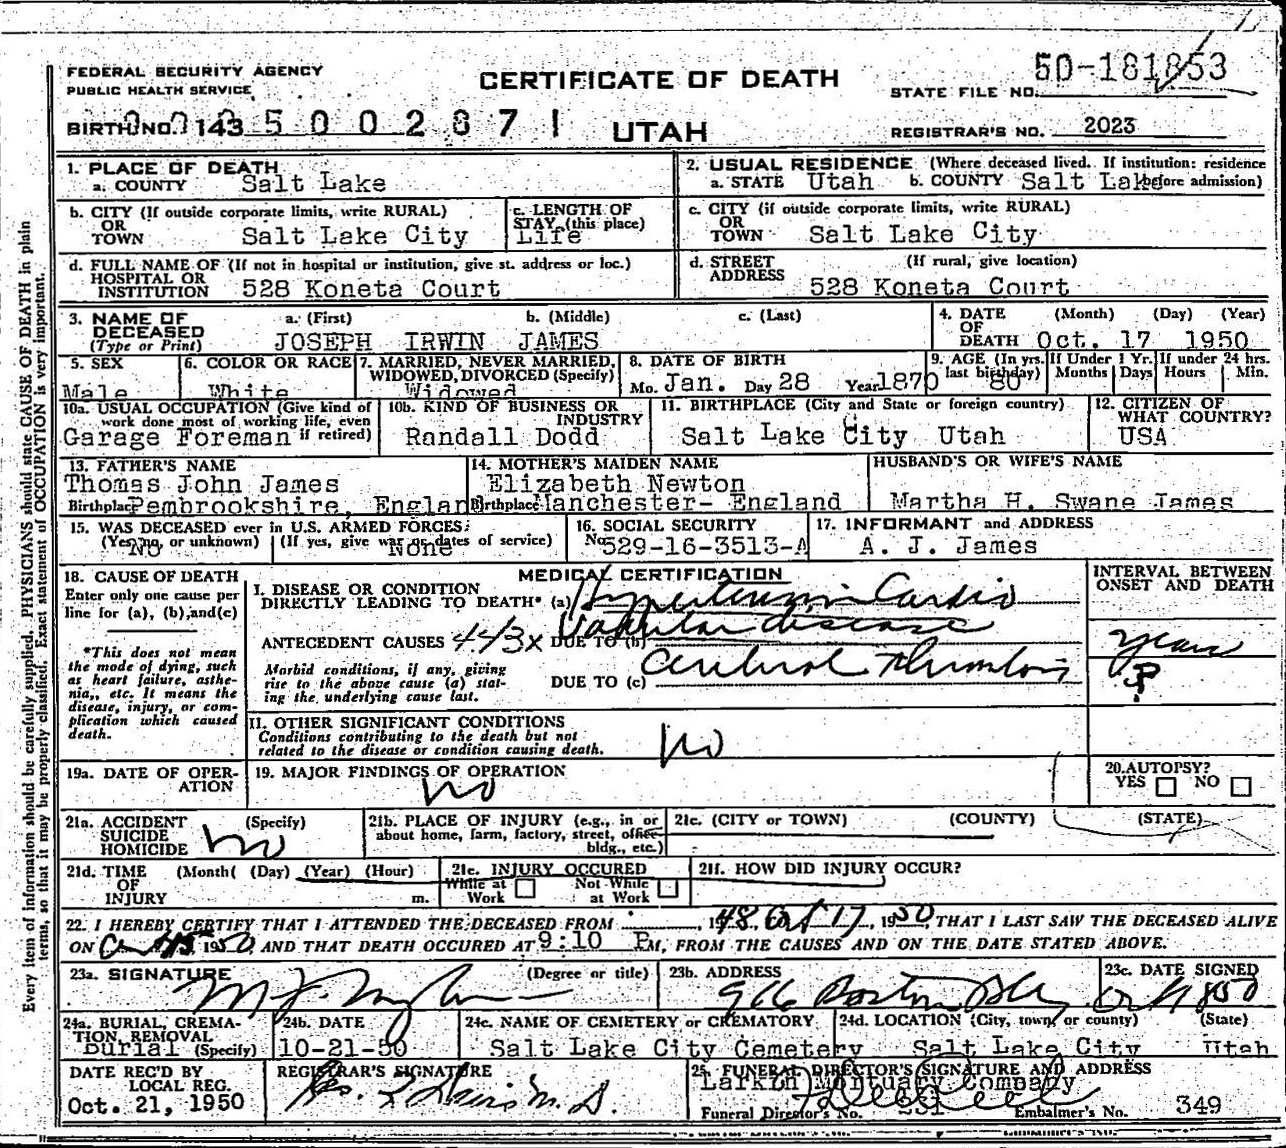 FEDERAL SECURITY AGENCY
PUBLIC HEALTH SERVICE
CERTIFICATE OF DEATH
STATE FILE NO. 50-181853
BIRTH NO. 143 5 0 0 2 8 7 1
UTAH
REGISTRAR'S NO. 2023
1. PLACE OF DEATH
a. COUNTY Salt Lake
2. USUAL RESIDENCE (Where deceased lived. If institution: residence before admission)
a. STATE Utah b. COUNTY Salt Lake
b. CITY (If outside corporate limits, write RURAL)
OR
TOWN Salt Lake City
c. LENGTH OF
STAY (this place)
Life
c. CITY (if outside corporate limits, write RURAL)
OR
TOWN Salt Lake City
d. FULL NAME OF (If not in hospital or institution, give st. address or loc.)
HOSPITAL OR
INSTITUTION 528 Koneta Court
d. STREET (If rural, give location)
ADDRESS 528 Koneta Court
3. NAME OF a. (First) b. (Middle) c. (Last)
DECEASED
(Type or Print) JOSEPH IRWIN JAMES
4. DATE (Month) (Day) (Year)
OF
DEATH Oct. 17 1950
5. SEX
Male
6. COLOR OR RACE
White
7. MARRIED, NEVER MARRIED,
WIDOWED, DIVORCED (Specify)
Widowed
8. DATE OF BIRTH
Mo. Jan. Day 28 Year 1870
9. AGE (In yrs. last birthday) 80
If Under 1 Yr. Months Days
If under 24 hrs. Hours Min.
10a. USUAL OCCUPATION (Give kind of
work done most of working life, even
if retired)
Garage Foreman
10b. KIND OF BUSINESS OR
INDUSTRY
Randall Dodd
11. BIRTHPLACE (City and State or foreign country)
Salt Lake City Utah
12. CITIZEN OF
WHAT COUNTRY?
USA
13. FATHER'S NAME
Thomas John James
Birthplace Pembrookshire, England
14. MOTHER'S MAIDEN NAME
Elizabeth Newton
Birthplace Manchester- England
HUSBAND'S OR WIFE'S NAME
Martha H. Swane James
15. WAS DECEASED ever in U.S. ARMED FORCES?
(Yes, no, or unknown) (If yes, give war or dates of service)
No None
16. SOCIAL SECURITY
No. 529-16-3513-A
17. INFORMANT and ADDRESS
A. J. James
18. CAUSE OF DEATH
Enter only one cause per
line for (a), (b), and (c)
*This does not mean
the mode of dying, such
as heart failure, asthe-
nia,, etc. It means the
disease, injury, or com-
plication which caused
death.
MEDICAL CERTIFICATION
I. DISEASE OR CONDITION
DIRECTLY LEADING TO DEATH* (a) Hypertensive Cardio
ANTECEDENT CAUSES 443x DUE TO (b) Vascular disease
Morbid conditions, if any, giving
rise to the above cause (a) stat-
ing the underlying cause last.
DUE TO (c) Cerebral Thrombosis
INTERVAL BETWEEN
ONSET AND DEATH
years
?
II. OTHER SIGNIFICANT CONDITIONS
Conditions contributing to the death but not
related to the disease or condition causing death.
no
19a. DATE OF OPER-
ATION
19. MAJOR FINDINGS OF OPERATION
no
20. AUTOPSY?
YES NO
21a. ACCIDENT (Specify)
SUICIDE
HOMICIDE no
21b. PLACE OF INJURY (e.g., in or
about home, farm, factory, street, office
bldg., etc.)
21c. (CITY or TOWN) (COUNTY) (STATE)
21d. TIME (Month( (Day) (Year) (Hour)
OF
INJURY m.
21e. INJURY OCCURED
While at Work Not While at Work
21f. HOW DID INJURY OCCUR?
22. I HEREBY CERTIFY THAT I ATTENDED THE DECEASED FROM , 1948, Oct 17, 1950, THAT I LAST SAW THE DECEASED ALIVE
ON Oct 15 1950 AND THAT DEATH OCCURED AT 9:10 P M, FROM THE CAUSES AND ON THE DATE STATED ABOVE.
23a. SIGNATURE (Degree or title)
23b. ADDRESS
Boston Bldg
23c. DATE SIGNED
24a. BURIAL, CREMA-
TION, REMOVAL
Burial (Specify)
24b. DATE
10-21-50
24c. NAME OF CEMETERY or CREMATORY
Salt Lake City Cemetery
24d. LOCATION (City, town, or county) (State)
Salt Lake City Utah
DATE REC'D BY
LOCAL REG.
Oct. 21, 1950
REGISTRAR'S SIGNATURE
M.D.
25. FUNERAL DIRECTOR'S SIGNATURE AND ADDRESS
Larkin Mortuary Company
Funeral Director's No. 231 Embalmer's No. 349
Every item of information should be carefully supplied. PHYSICIANS should state CAUSE OF DEATH in plain
terms, so that it may be properly classified. Exact statement of OCCUPATION is very important.